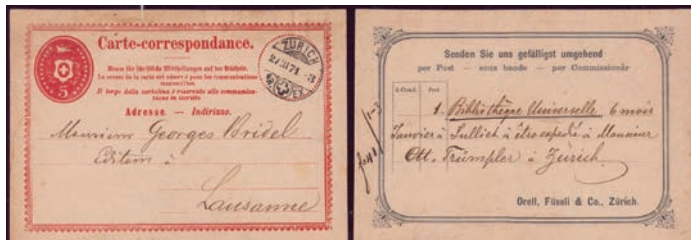 Carte-correspondance.
5
ZÜRICH
Raum für schriftliche Mittheilungen auf der Rückseite.
Le revers de la carte est réservé pour les communications
manuscrites.
Il tergo della cartolina è riservato alle communica-
zioni in iscritto
Adresse. — Indirizzo.
Monsieur Georges Bridel
Editeur à
Lausanne
Senden Sie uns gefälligst umgehend
per Post — sous bande — per Commissionär
à Cond. Fest
1. Bibliothèque Universelle, 6 mois
Janvier à Juillet à être expédié à Monsieur
Ott. Trümpler à Zürich.
Orell, Füssli & Co., Zürich.